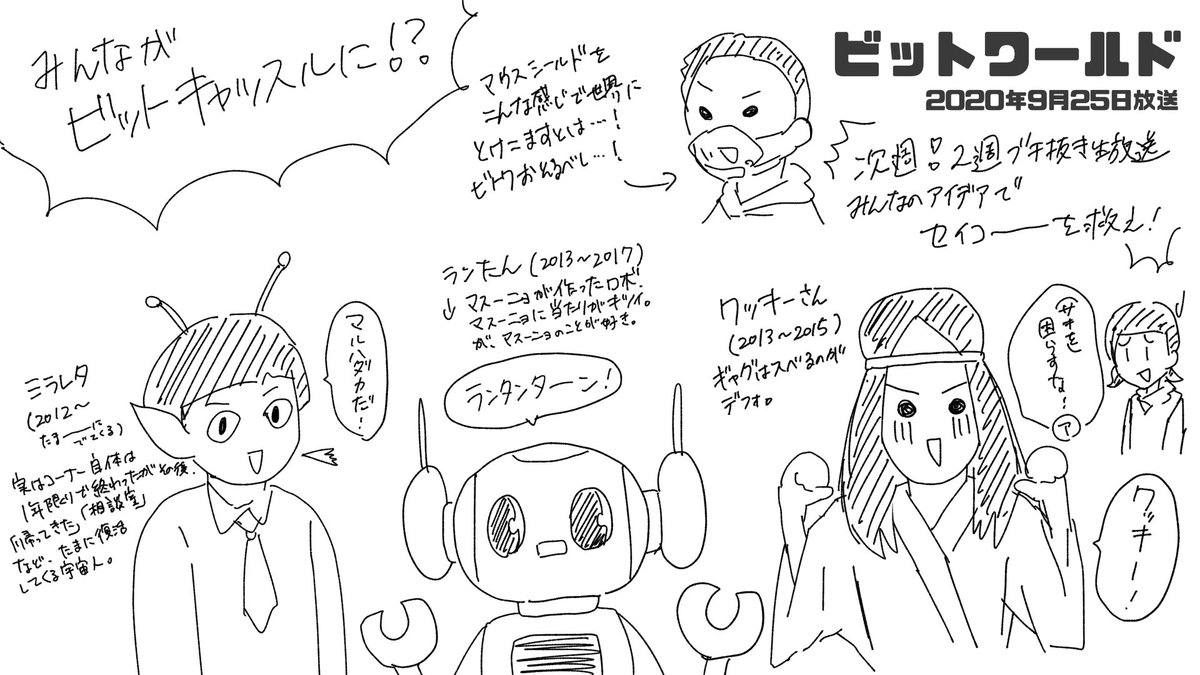 みんなが
ビットキャッスルに!?
マウスシールドを
こんな感じで世界に
とけこますとは…!
ビトワおそるべし…!
ビットワールド
2020年9月25日放送
次週!2週ブチ抜き生放送
みんなのアイデアで
セイコーを救え!
ミラレタ
(2012〜
たまーに
でてくる)
実はコーナー自体は
1年限りで終わったがその後、
「帰ってきた」「相談室」
など、たまに復活
してくる宇宙人。
マルハダカだ!
ランたん(2013〜2017)
↓マスーニョが作ったロボ。
マスーニョに当たりがキツイ。
が、マスーニョのことが好き。
ランタンターン!
ワッキーさん
(2013〜2015)
ギャグはスベるのが
デフォ。
サチを
困らすな!
ア
ワッキー!